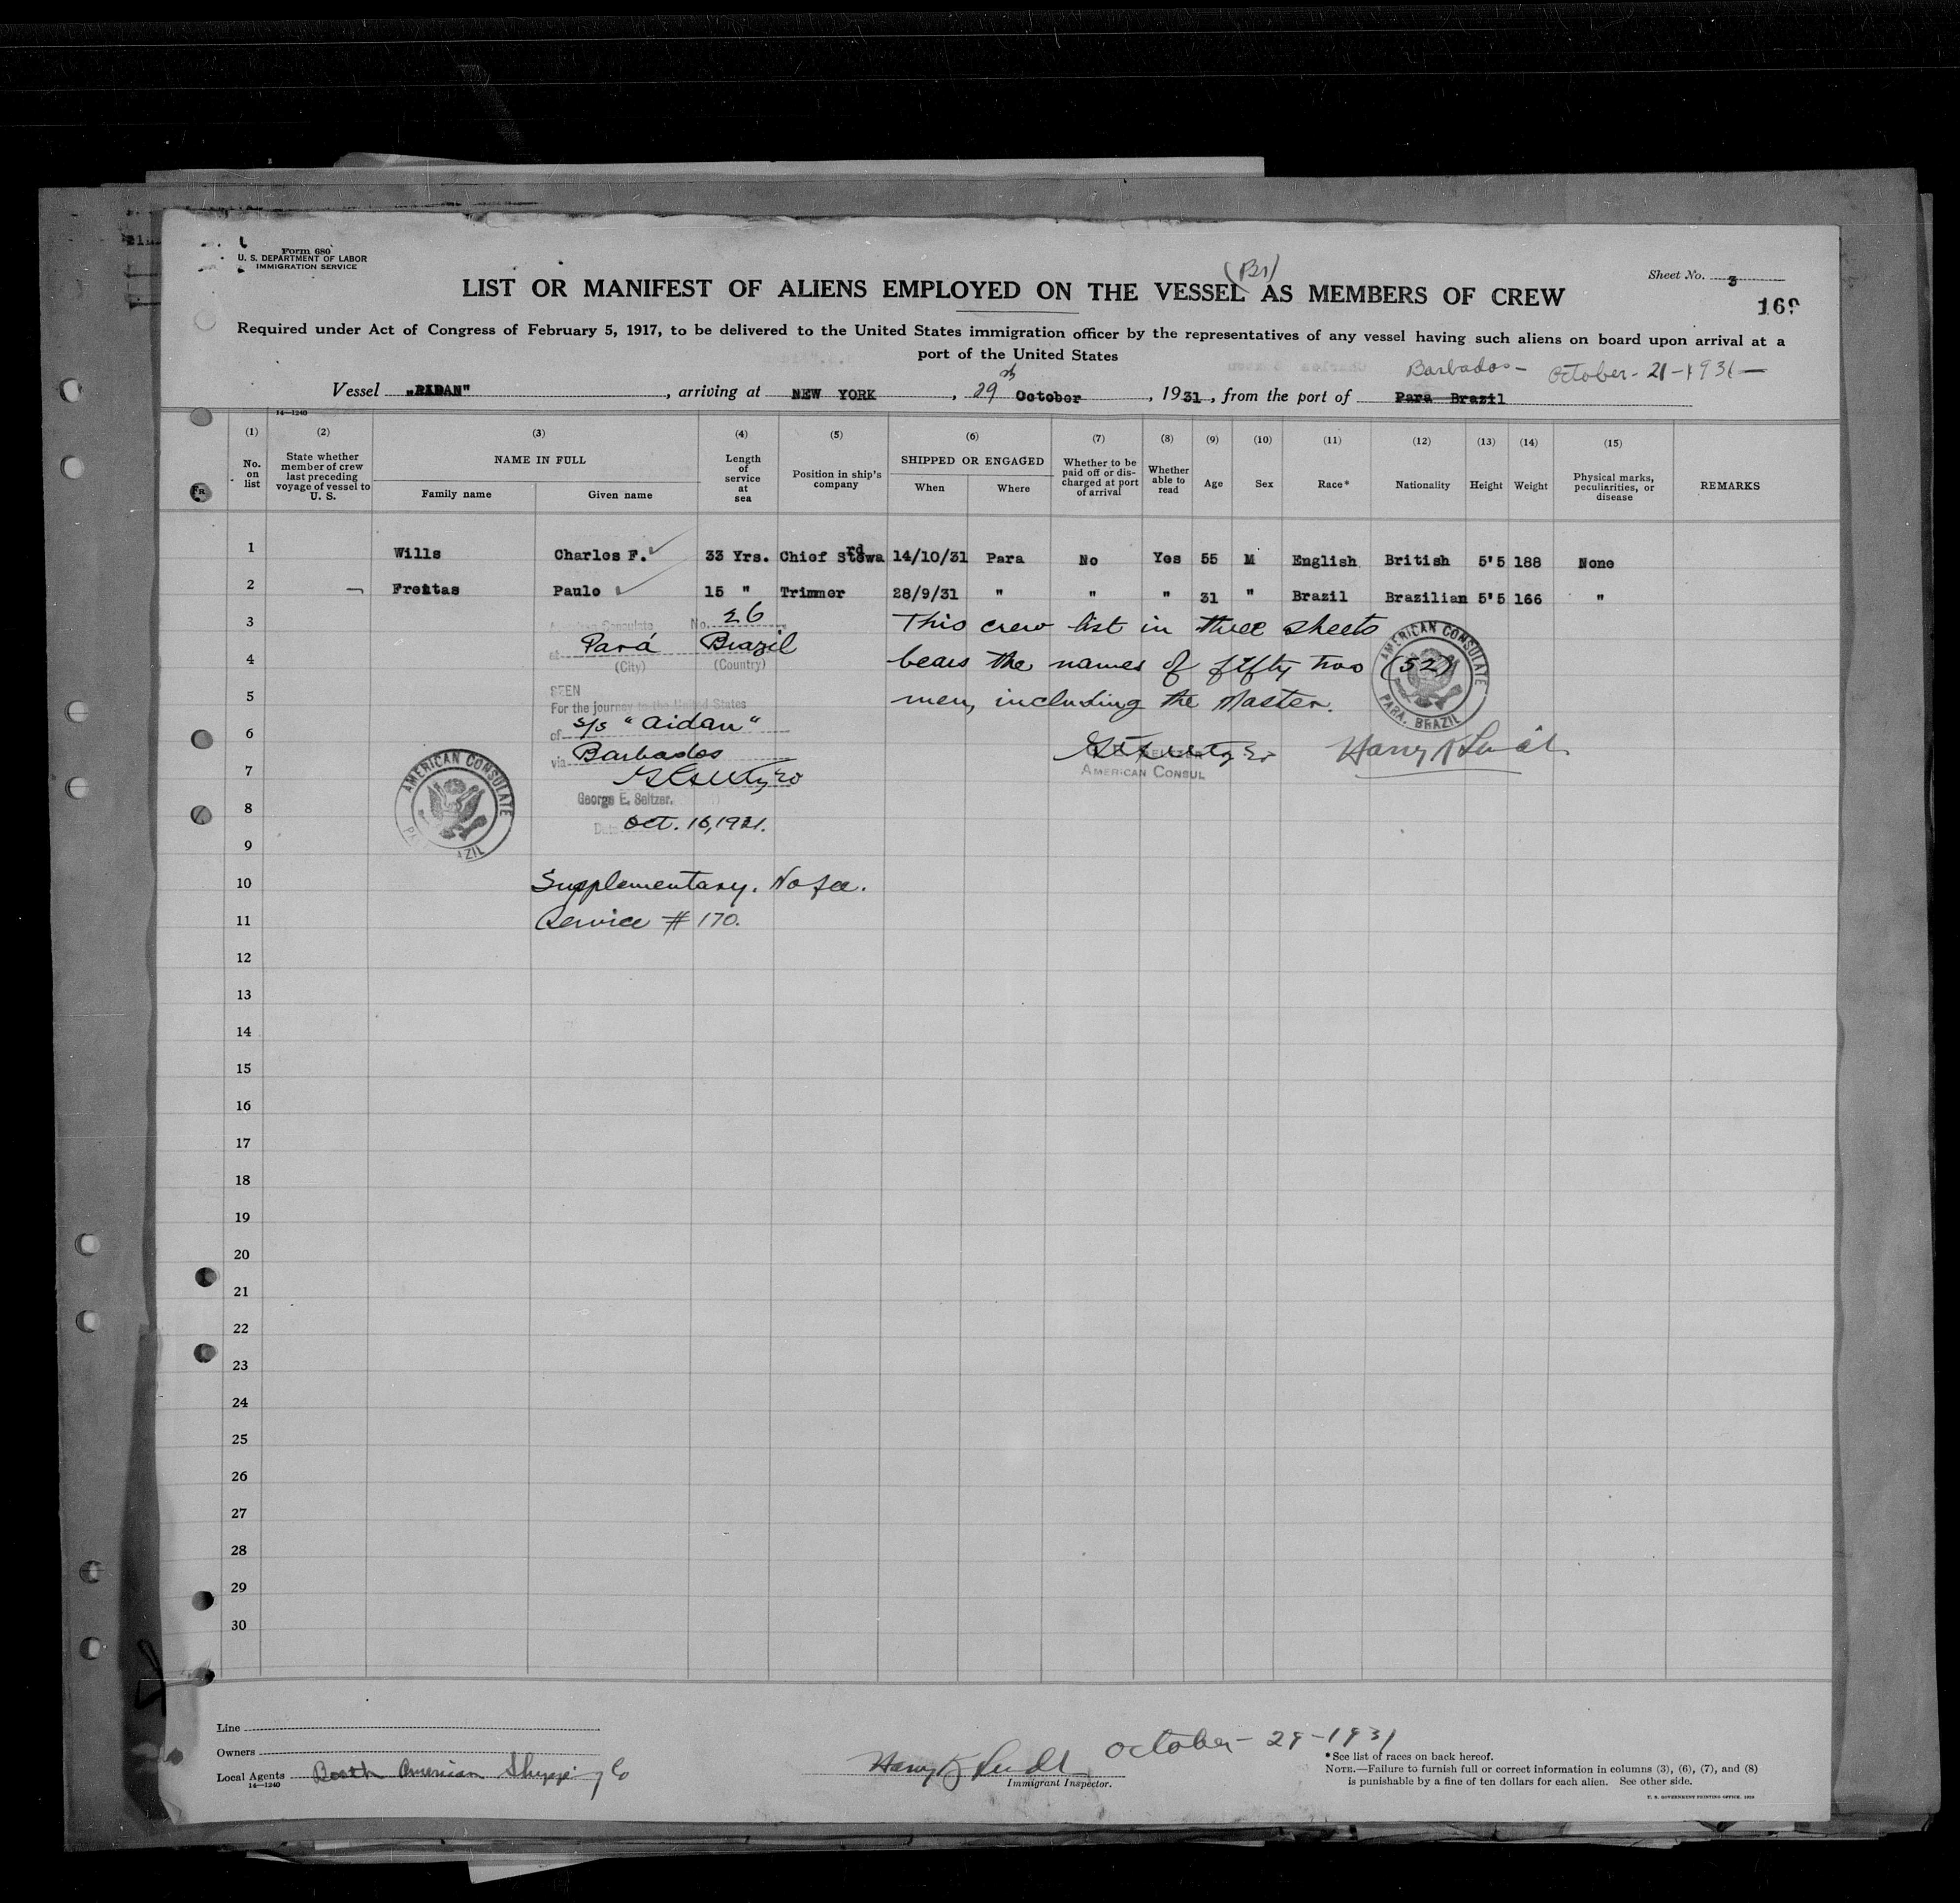 Form 680
U. S. DEPARTMENT OF LABOR
IMMIGRATION SERVICE
Sheet No. 3
(Br)
LIST OR MANIFEST OF ALIENS EMPLOYED ON THE VESSEL AS MEMBERS OF CREW
Required under Act of Congress of February 5, 1917, to be delivered to the United States immigration officer by the representatives of any vessel having such aliens on board upon arrival at a
port of the United States
Barbados - October - 21 - 1931 -
Vessel , arriving at NEW YORK , 29th October , 1931 , from the port of Para Brazil
14—1240
(1) (2) (3) (4) (5) (6) (7) (8) (9) (10) (11) (12) (13) (14) (15)
No. on list
State whether member of crew last preceding voyage of vessel to U. S.
NAME IN FULL
Family name
Given name
Length of service at sea
Position in ship's company
SHIPPED OR ENGAGED
When
Where
Whether to be paid off or discharged at port of arrival
Whether able to read
Age
Sex
Race*
Nationality
Height
Weight
Physical marks, peculiarities, or disease
REMARKS
1 Wills Charles F. 33 Yrs. Chief Steward 14/10/31 Para No Yes 55 M English British 5'5 188 None
2 Freitas Paulo 15 " Trimmer 28/9/31 " " " 31 " Brazil Brazilian 5'5 166 "
3
4
5
6
7
8
9
10
11
12
13
14
15
16
17
18
19
20
21
22
23
24
25
26
27
28
29
30
American Consulate No. 26
at Pará Brazil
(City) (Country)
SEEN
For the journey to the United States
of s/s "Aidan"
via Barbados
George E. Seltzer.
Date Oct. 16, 1931.
AMERICAN CONSULATE
PARA, BRAZIL
Supplementary. No fee.
Service # 170.
This crew list in three sheets
bears the names of fifty two (52)
men, including the Master.
AMERICAN CONSULATE
PARA, BRAZIL
AMERICAN CONSUL
Line
Owners
Local Agents Booth American Shipping Co
14—1240
October - 29 - 1931
Immigrant Inspector.
*See list of races on back hereof.
NOTE.—Failure to furnish full or correct information in columns (3), (6), (7), and (8)
is punishable by a fine of ten dollars for each alien. See other side.